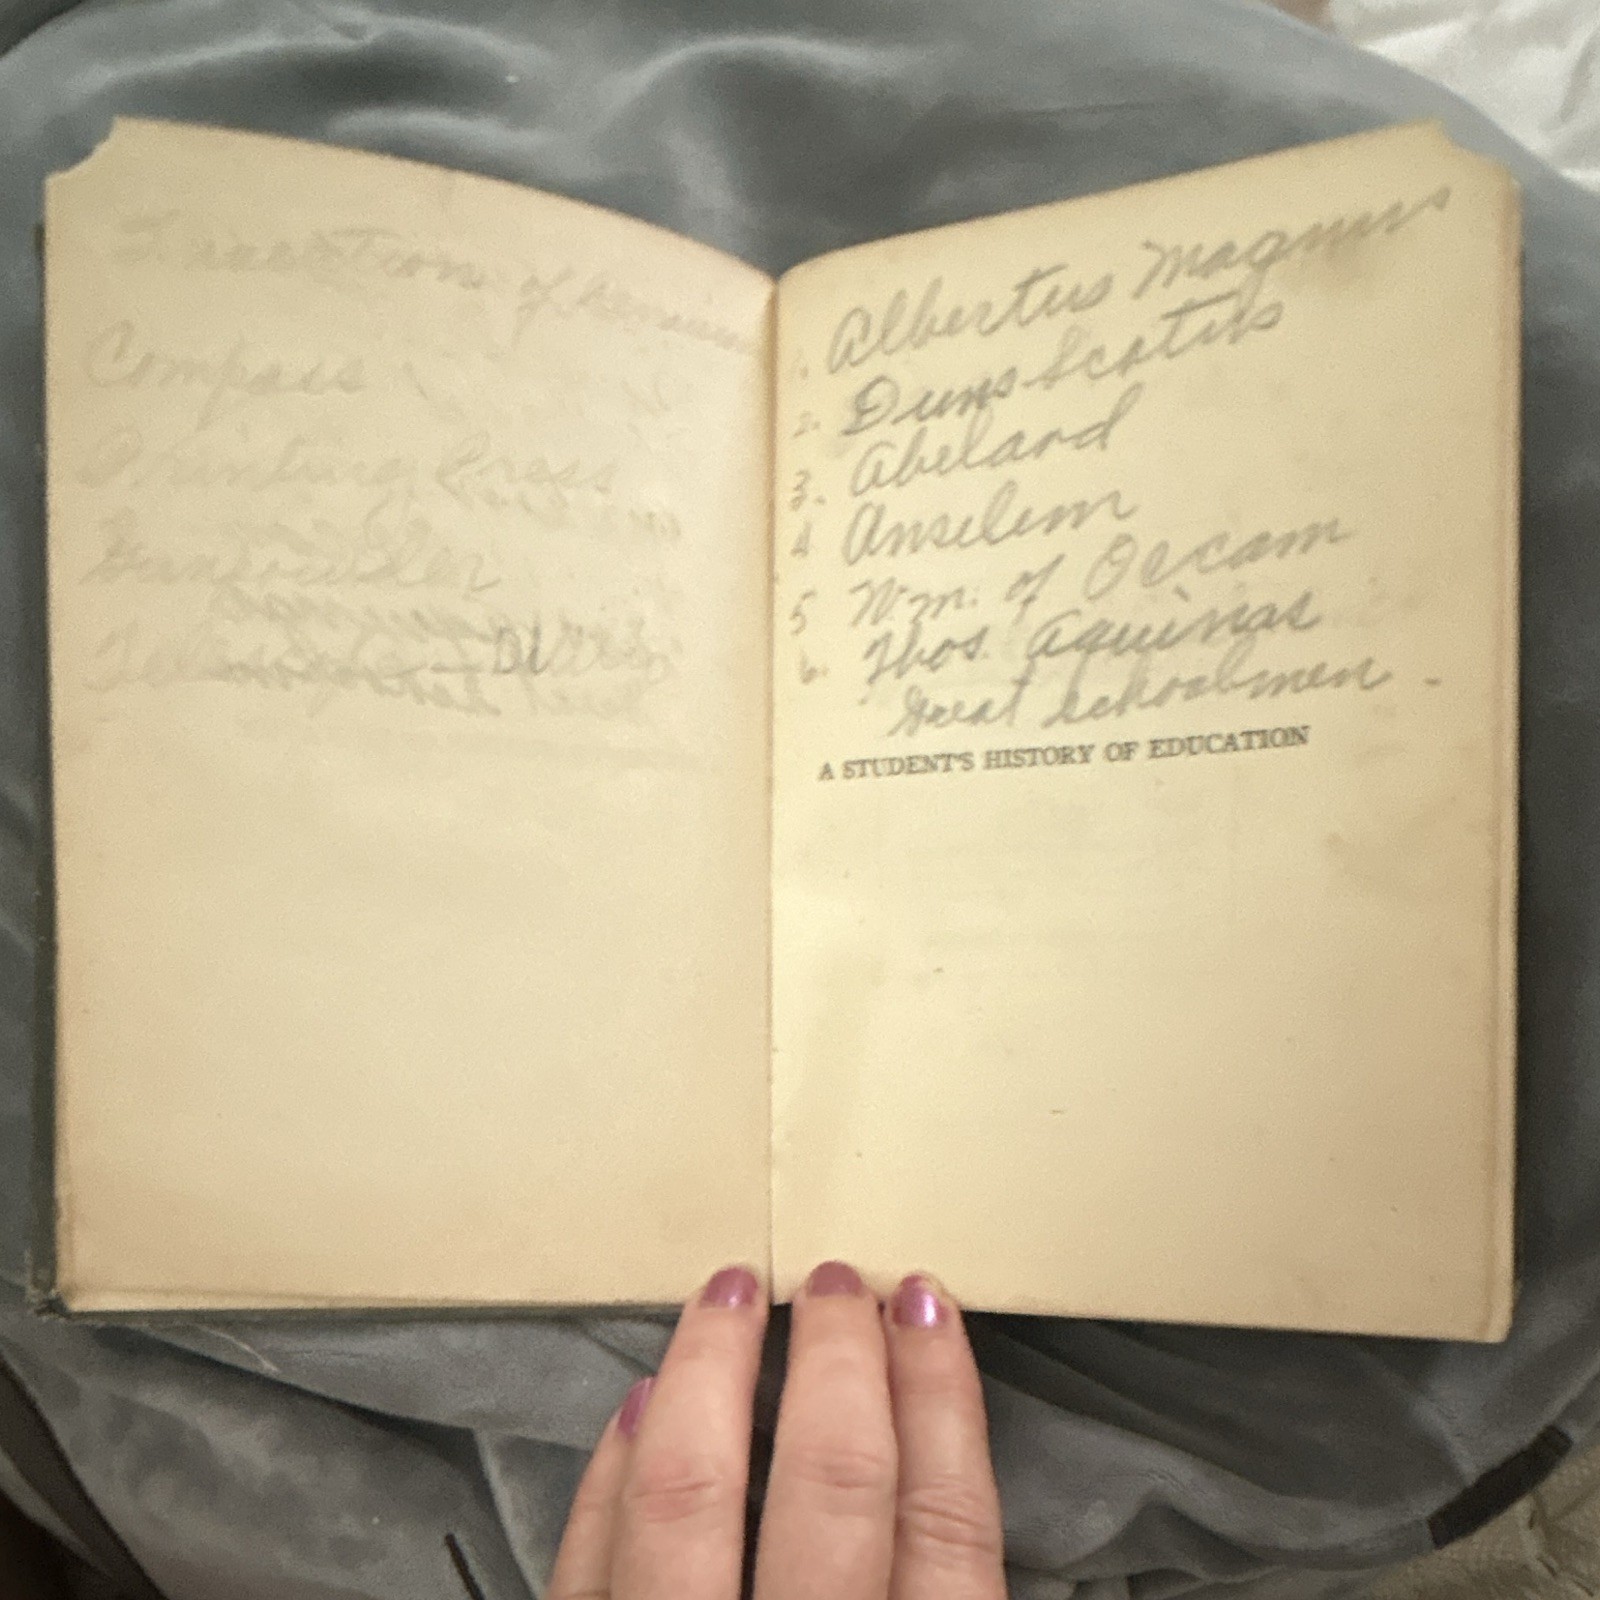 of
Compass
Printing Press
Gunpowder
1. Albertus Magnus
2. Duns Scotus
3. Abelard
4 Anselem
5 Wm. of Occam
6. Thos. Aquinas
Great schoolmen
A STUDENT'S HISTORY OF EDUCATION